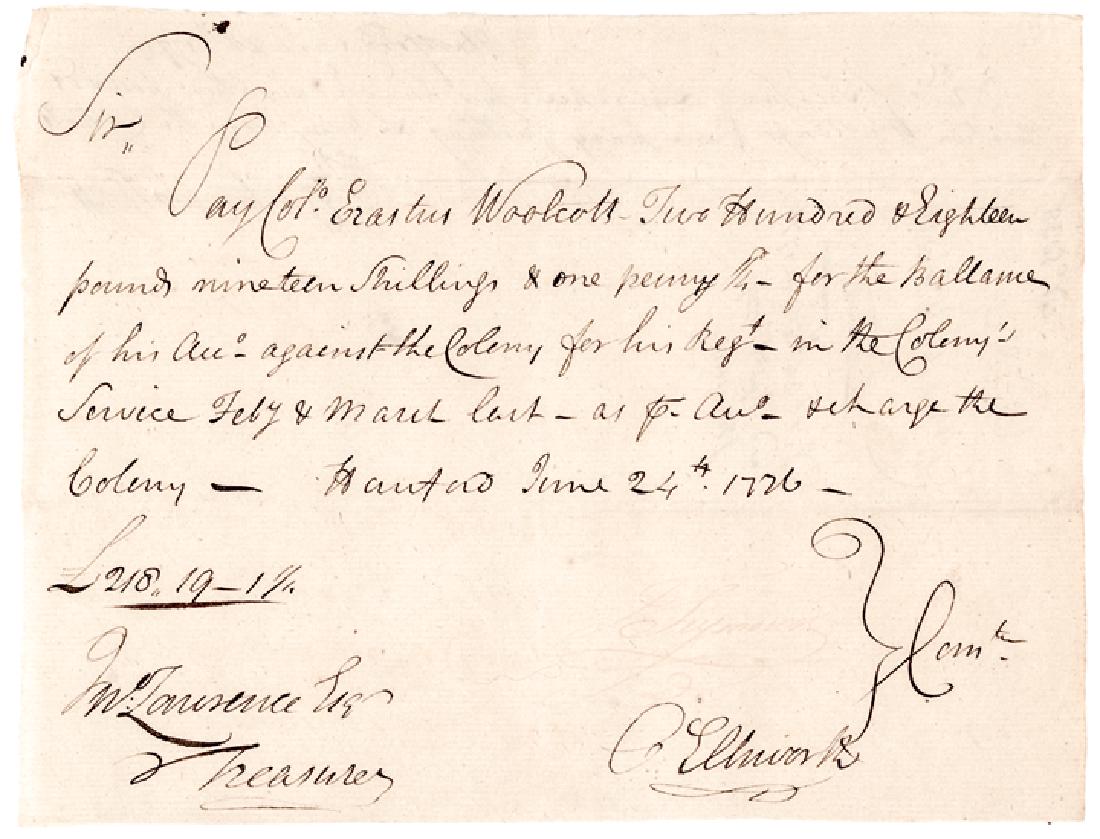 Sir,,
Pay Colo. Erastus Woolcott - Two Hundred & Eighteen
pounds nineteen Shillings & one penny - for the Ballance
of his Acco. against the Colony for his Regt. - in the Colony's
Service Feby & March last - as pr. Acco. & charge the
Colony — Hartford June 24th. 1776 -
£218,, 19 - 1
Seymour
Comte.
Jno. Lawrence Esqr
Treasurer
O. Ellsworth